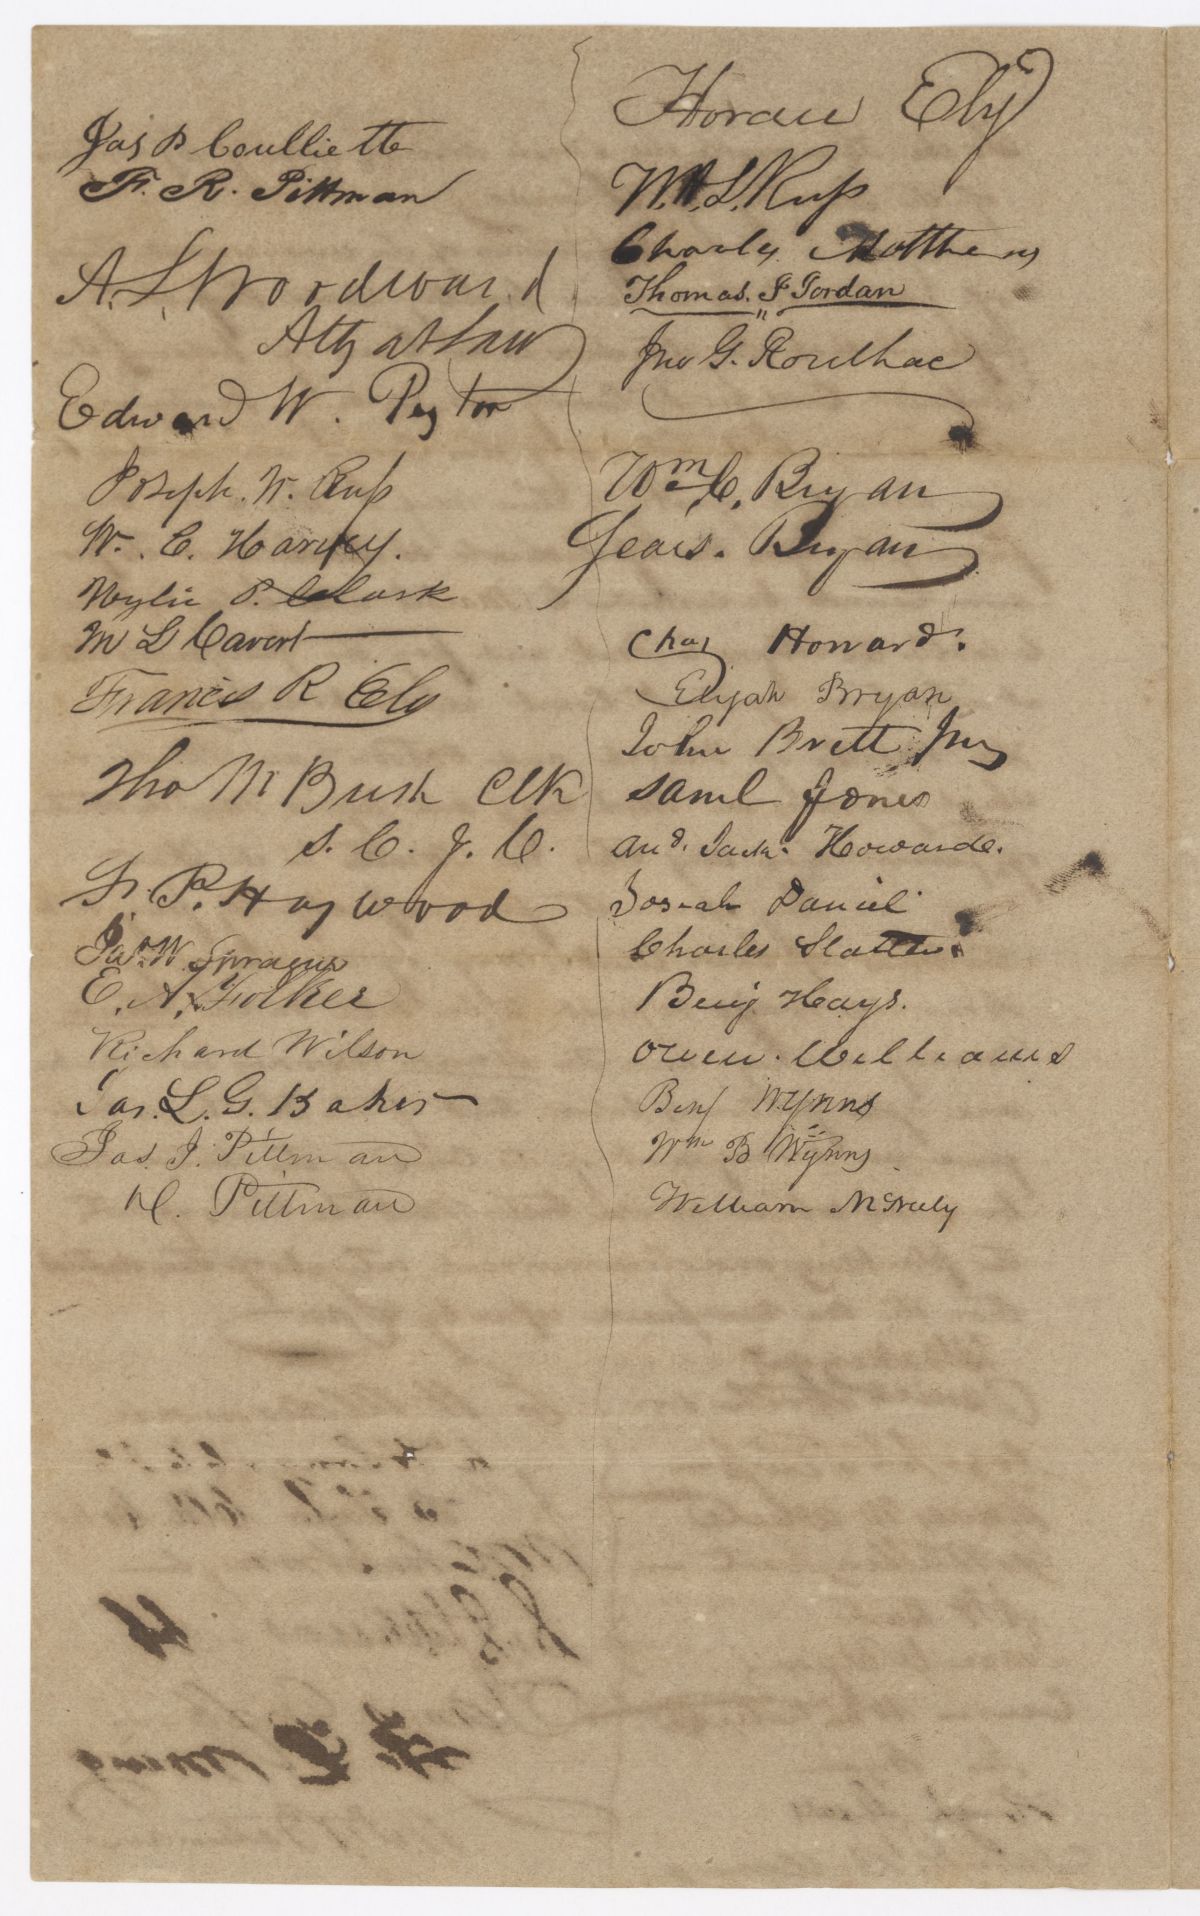 Jas P Coulliette
F. R. Pittman
A L Woodward
Atty at Law
Edward W. Peyton
Joseph. W. Rufs
W. E. Harvey.
Wylie P. Clark
M L Cavert
Francis R Ely
Tho M Bush Clk
S. C. J. C.
Fr. P. Haywood
Jas. W. Sprague
E. A. Folker
Richard Wilson
Jas. L. G. Baker
Jas. J. Pittman
M. Pittman
Horace Ely
W. H. L. Rufs
Charly Matthews
Thomas. J Jordan
Jno G. Roulhac
Wm C. Bryan
Sears. Bryan
Chas Howard.
Elijah Bryan
John Brett Jnr
Saml Jones
And. Jack. Howarde.
Josiah Daniel
Charles Slatter
Benj Hays.
Owen. Williams
Benj Wynns
Wm B Wynns
William McNeely